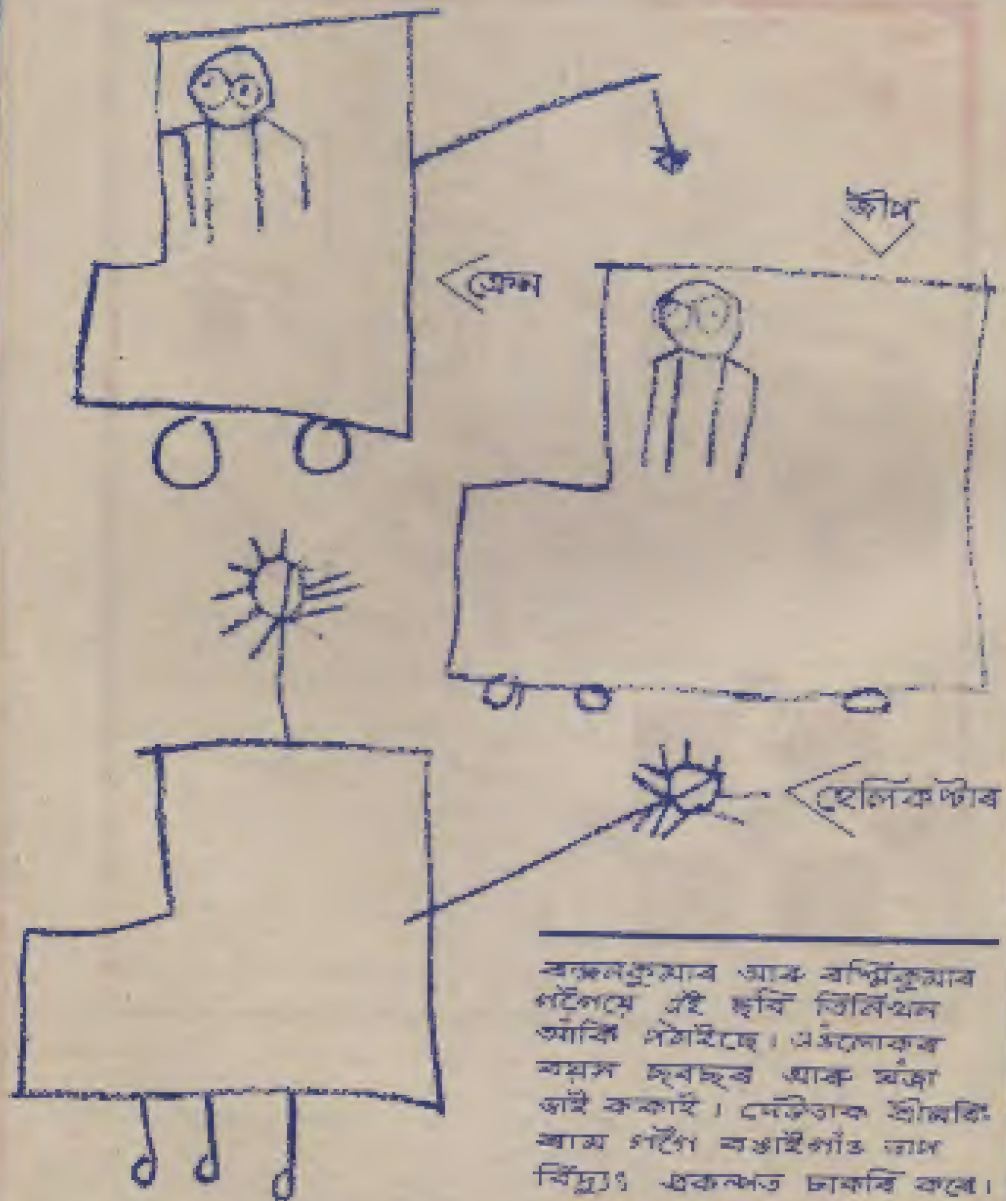 জীপ
ক্রেন
হেলিকপ্টাৰ
ৰঞ্জনকুমাৰ আৰু ৰশ্মিকুমাৰ
গগৈয়ে এই ছবি তিনিখন
আঁকি পঠাইছে। এওঁলোকৰ
বয়স ছবছৰ আৰু যঁজা
ভাই ককাই। দেউতাক শ্ৰীমণি
ৰাম গগৈ বঙাইগাঁও তাপ
বিদ্যুৎ প্ৰকল্পত চাকৰি কৰে।